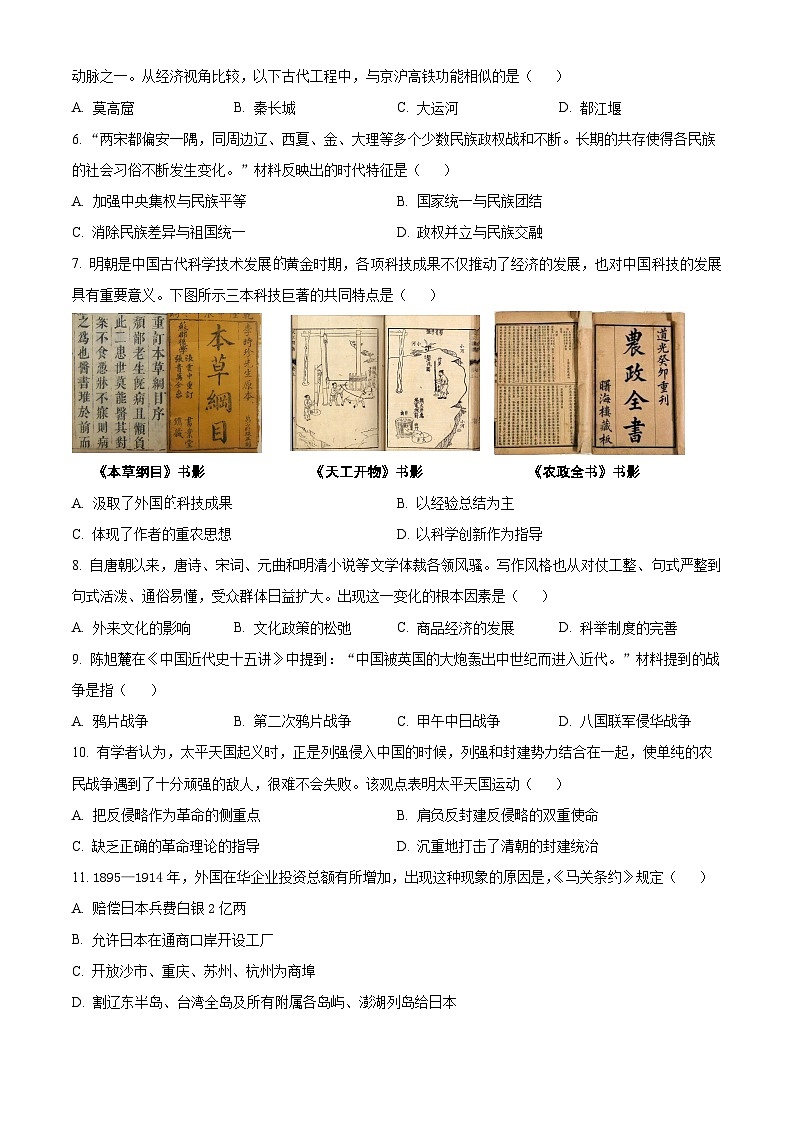 动脉之一。从经济视角比较，以下古代工程中，与京沪高铁功能相似的是（  ）
A. 莫高窟 B. 秦长城 C. 大运河 D. 都江堰
6. “两宋都偏安一隅，同周边辽、西夏、金、大理等多个少数民族政权战和不断。长期的共存使得各民族
的社会习俗不断发生变化。”材料反映出的时代特征是（  ）
A. 加强中央集权与民族平等 B. 国家统一与民族团结
C. 消除民族差异与祖国统一 D. 政权并立与民族交融
7. 明朝是中国古代科学技术发展的黄金时期，各项科技成果不仅推动了经济的发展，也对中国科技的发展
具有重要意义。下图所示三本科技巨著的共同特点是（  ）
重訂本草綱目序
顏鄰老生旣病且懶負
此二患世莫能醫其對
案不食愚牀不寐則病
之爲也醫書堆於前而
李時珍先生原本
本草綱目
農政全書
道光癸卯重刊
曙海樓藏板
《本草纲目》书影 《天工开物》书影 《农政全书》书影
A. 汲取了外国的科技成果 B. 以经验总结为主
C. 体现了作者的重农思想 D. 以科学创新作为指导
8. 自唐朝以来，唐诗、宋词、元曲和明清小说等文学体裁各领风骚。写作风格也从对仗工整、句式严整到
句式活泼、通俗易懂，受众群体日益扩大。出现这一变化的根本因素是（  ）
A. 外来文化的影响 B. 文化政策的松弛 C. 商品经济的发展 D. 科举制度的完善
9. 陈旭麓在《中国近代史十五讲》中提到：“中国被英国的大炮轰出中世纪而进入近代。”材料提到的战
争是指（  ）
A. 鸦片战争 B. 第二次鸦片战争 C. 甲午中日战争 D. 八国联军侵华战争
10. 有学者认为，太平天国起义时，正是列强侵入中国的时候，列强和封建势力结合在一起，使单纯的农
民战争遇到了十分顽强的敌人，很难不会失败。该观点表明太平天国运动（  ）
A. 把反侵略作为革命的侧重点 B. 肩负反封建反侵略的双重使命
C. 缺乏正确的革命理论的指导 D. 沉重地打击了清朝的封建统治
11. 1895—1914 年，外国在华企业投资总额有所增加，出现这种现象的原因是，《马关条约》规定（  ）
A. 赔偿日本兵费白银 2 亿两
B. 允许日本在通商口岸开设工厂
C. 开放沙市、重庆、苏州、杭州为商埠
D. 割辽东半岛、台湾全岛及所有附属各岛屿、澎湖列岛给日本